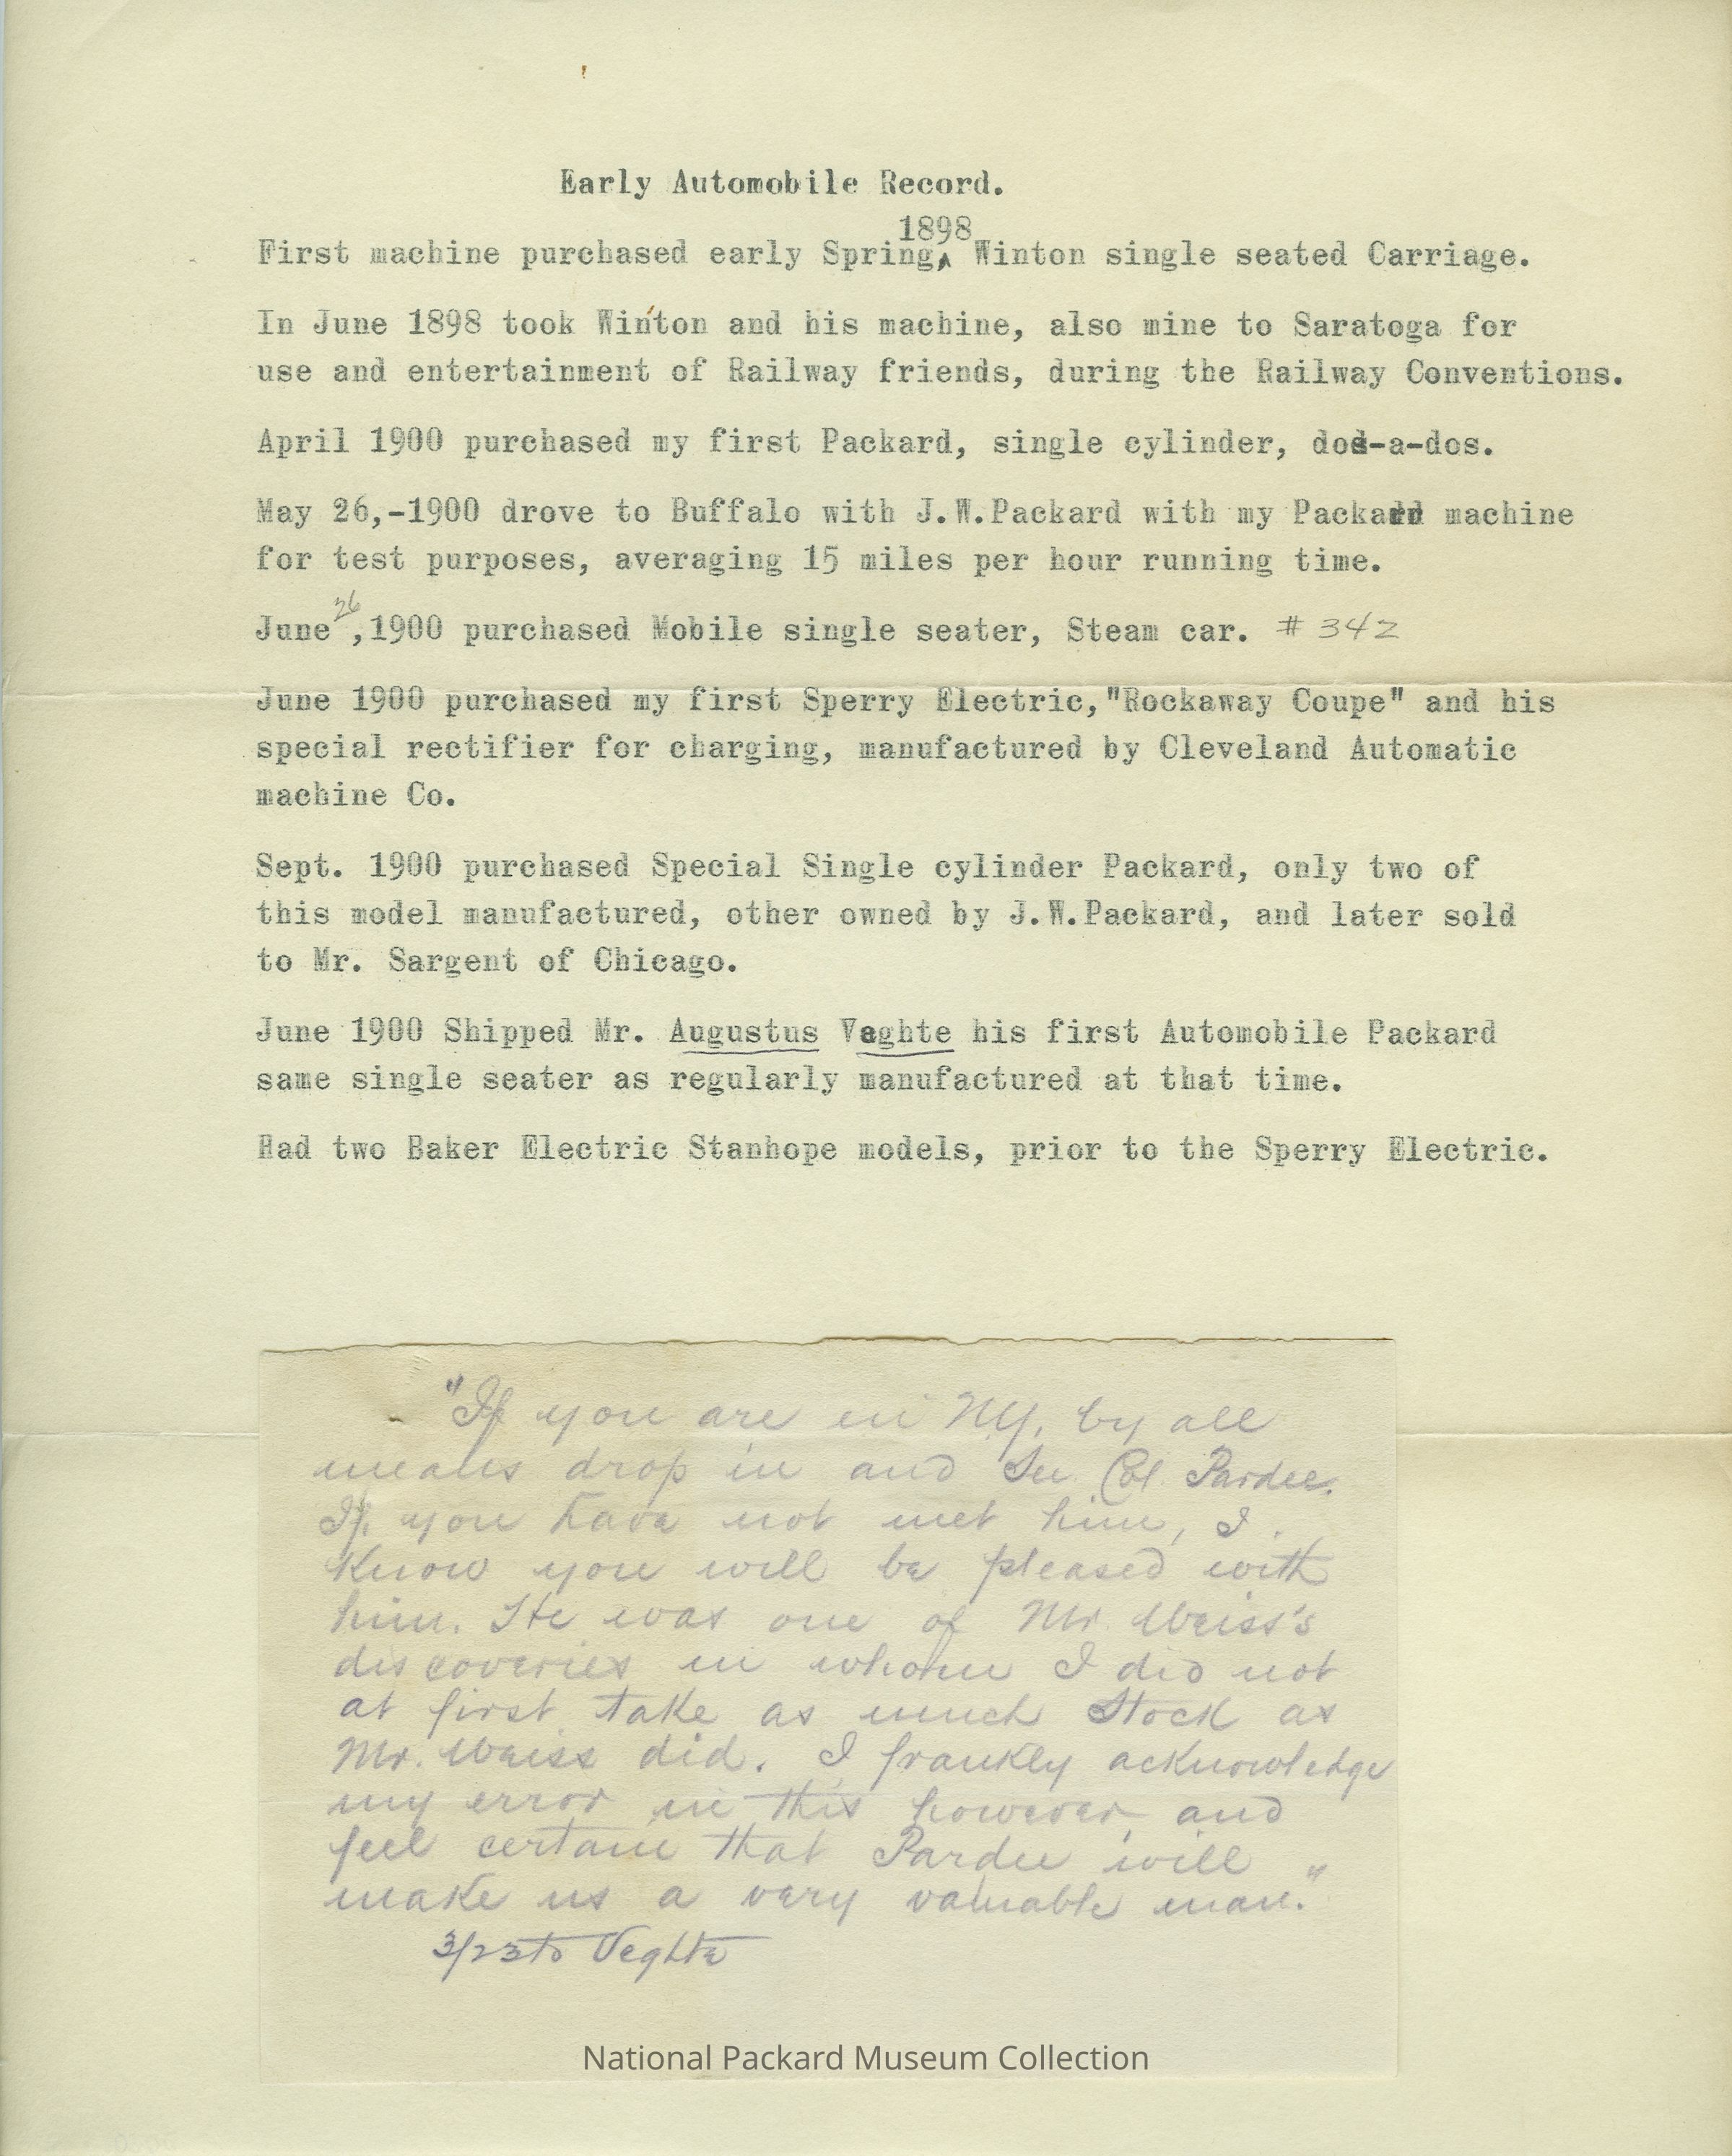 Early Automobile Record.
1898
First machine purchased early Spring,^ Winton single seated Carriage.
In June 1898 took Winton and his machine, also mine to Saratoga for
use and entertainment of Railway friends, during the Railway Conventions.
April 1900 purchased my first Packard, single cylinder, dos-a-dos.
May 26,-1900 drove to Buffalo with J.W.Packard with my Packard machine
for test purposes, averaging 15 miles per hour running time.
June 26,1900 purchased Mobile single seater, Steam car. # 342
June 1900 purchased my first Sperry Electric,"Rockaway Coupe" and his
special rectifier for charging, manufactured by Cleveland Automatic
machine Co.
Sept. 1900 purchased Special Single cylinder Packard, only two of
this model manufactured, other owned by J.W.Packard, and later sold
to Mr. Sargent of Chicago.
June 1900 Shipped Mr. Augustus Veghte his first Automobile Packard
same single seater as regularly manufactured at that time.
Had two Baker Electric Stanhope models, prior to the Sperry Electric.
"If you are in NY, by all
means drop in and See Col. Pardee.
If you have not met him, I
know you will be pleased with
him. He was one of Mr. Weiss's
discoveries in whom I did not
at first take as much Stock as
Mr. Weiss did. I frankly acknowledge
my error in this however, and
feel certain that Pardee will
make us a very valuable man."
3/23 to Veghte
National Packard Museum Collection